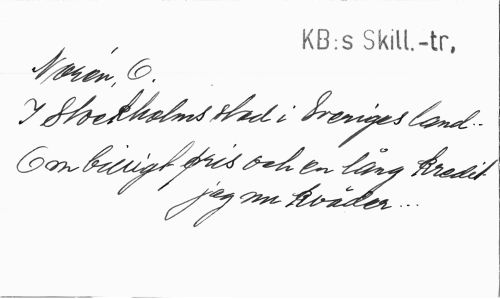 KB:s Skill.-tr,
Norén, O.
I Stockholms stad i Sveriges land..
Om billigt pris och en lång kredit
jag nu kväder...